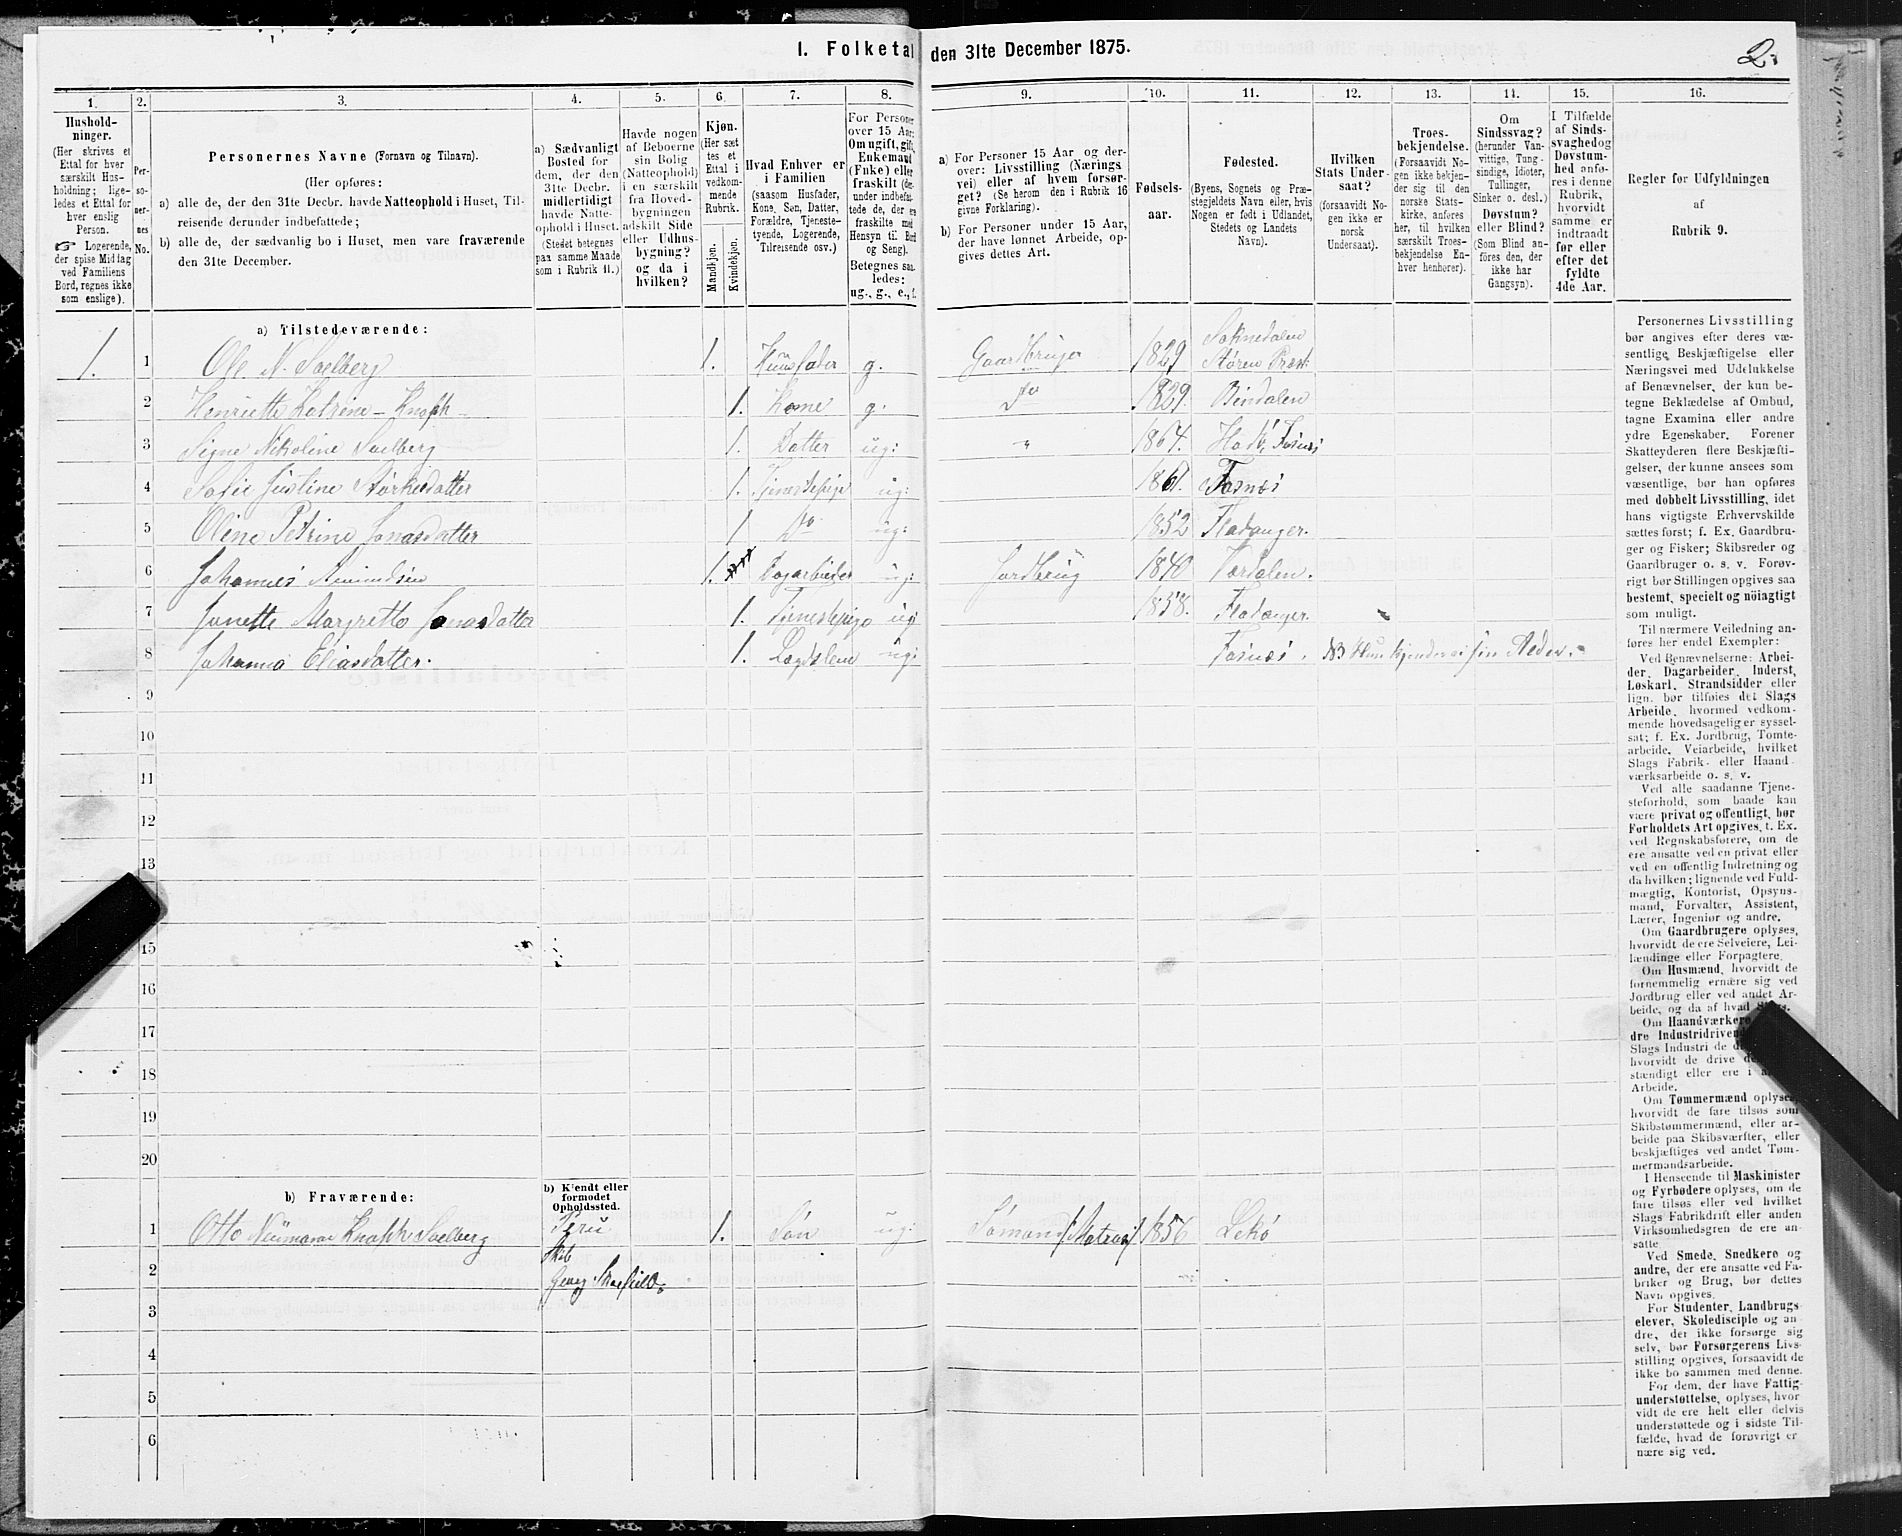 I. Folketal den 31te December 1875.
2.
1.
2.
3.
4.
5.
6.
7.
8.
9.
10.
11.
12.
13.
14.
15.
16.
Hushold-
ninger.
(Her skrives et
Ettal for hver
særskilt Hus-
holdning; lige-
ledes et Ettal for
hver enslig
Person.
☞ Logerende,
der spise Middag
ved Familiens
Bord, regnes ikke
som enslige).
Per-
so-
ner-
nes
No.
Personernes Navne (Fornavn og Tilnavn).
(Her opføres:
a) alle de, der den 31te Decbr. havde Natteophold i Huset, Til-
reisende derunder indbefattede;
b) alle de, der sædvanlig bo i Huset, men vare fraværende
den 31te December.
a) Sædvanligt
Bosted for
dem, der den
31te Decbr.
midlertidigt
havde Natte-
ophold i Huset.
(Stedet betegnes
paa samme Maade
som i Rubrik 11.)
Havde nogen
af Beboerne
sin Bolig
(Natteophold)
i en særskilt
fra Hoved-
bygningen
adskilt Side
eller Udhus-
bygning?
og da i
hvilken?
Kjøn.
(Her sæt-
tes et
Ettal i
vedkom-
mende
Rubrik.
Mandkjøn.
Kvindekjøn.
Hvad Enhver er
i Familien
(saasom Husfader,
Kone, Søn, Datter,
Forældre, Tjeneste-
tyende, Logerende,
Tilreisende osv.)
For Personer
over 15 Aar:
Om ugift, gift,
Enkemand
(Enke) eller
fraskilt (der-
under indbefat-
tede de, der ere
fraskilte med
Hensyn til Bord
og Seng).
Betegnes saa-
ledes:
ug., g., e., f.
a) For Personer 15 Aar og der-
over: Livsstilling (Nærings-
vei) eller af hvem forsør-
get? (Se herom den i Rubrik 16
givne Forklaring).
b) For Personer under 15 Aar,
der have lønnet Arbeide, op-
gives dettes Art.
Fødsels-
aar.
Fødested.
(Byens, Sognets og Præ-
stegjeldets Navn eller, hvis
Nogen er født i Udlandet,
Stedets og Landets
Navn).
Hvilken
Stats Under-
saat?
(forsaavidt No-
gen ikke er
norsk
Undersaat).
Troes-
bekjendelse.
(Forsaavidt No-
gen ikke bekjen-
der sig til den
norske Stats-
kirke, anføres
her, til hvilken
særskilt Troes-
bekjendelse En-
hver henhører).
Om
Sindssvag?
(herunder Van-
vittige, Tung-
sindige, Idioter,
Tullinger,
Sinker o. desl.)
Døvstum?
eller Blind?
(Som Blind an-
føres den, der
ikke har
Gangsyn).
I Tilfælde
af Sinds-
svaghed og
Døvstum-
hed anfø-
res i denne
Rubrik,
hvorvidt
samme er
indtraadt
før eller
efter det
fyldte
4de Aar.
Regler for Udfyldningen
af
Rubrik 9.
a) Tilstedeværende:
1. 1 Ole N. Solberg 1. Huusfader g. Gaardbruger 1829 Soknedalen
Støren Præst.
2 Henriette Katrine Knoph 1. Kone g. Do 1829 Bindalen
3 Signe Nikoline Solberg 1. Datter ug: " 1864. Fosnæs
4 Sofie Justine 1. Tjenestepige ug: 1861. Fosnæs
5 Oline Petrine Jonasdatter 1 Do ug: 1852 Fladanger.
6 Johannes Amundsen 1. Dagarbeider ug: Jordbrug 1840 Værdalen.
7 Janette Margrette Jonasdatter 1. Tjenestepige ug 1858. Fladanger.
8 Johanna Eliasdatter. 1. Lægdslem ug: Fosnæs. NB Hun kjender ei sin Alder.
9
10
11
12
13
15
16
17
18
19
20
b) Fraværende:
b) Kjendt eller
formodet
Opholdssted.
1 Otto Knoph Solberg Peru 1. Søn ug: Sømand /Matros/ 1856 Lekø
Skib
2 Georg
3
4
5
6
Personernes Livsstilling
bør angives efter deres væ-
sentlige Beskjæftigelse eller
Næringsvei med Udelukkelse
af Benævnelser, der kun be-
tegne Beklædelse af Ombud,
tagne Examina eller andre
ydre Egenskaber. Forener
Skatteyderen flere Beskjæfti-
gelser, der kunne ansees som
væsentlige, bør han opføres
med dobbelt Livsstilling, idet
hans vigtigste Erhvervskilde
sættes først; f. Ex. Gaardbru-
ger og Fisker; Skibsreder og
Gaardbruger o. s. v. Forøv-
rigt bør Stillingen opgives saa
bestemt, specielt og nøiagtigt
som muligt.
Til nærmere Veiledning an-
føres her endel Exempler:
Ved Benævnelserne: Arbei-
der, Dagarbeider, Inderst,
Løskarl, Strandsidder eller
lign. bør tilføies det Slags
Arbeide, hvormed vedkom-
mende hovedsagelig er syssel-
sat; f. Ex. Jordbrug, Tomte-
arbeide, Veiarbeide, hvilket
Slags Fabrik- eller Haand-
værksarbeide o. s. v.
Ved alle saadanne Tjene-
steforhold, som baade kan
være privat og offentligt, bør
Forholdets Art opgives, t. Ex.
ved Regnskabsførere, om de
ere ansatte ved en privat eller
ved en offentlig Indretning og
da hvilken; lignende ved Fuld-
mægtig, Kontorist, Opsyns-
mand, Forvalter, Assistent,
Lærer, Ingeniør og andre.
Om Gaardbrugere oplyses,
hvorvidt de ere Selveiere, Lei-
lændinge eller Forpagtere.
Om Husmænd, hvorvidt de
fornemmelig ernære sig ved
Jordbrug eller ved andet Ar-
beide, og da af hvad Slags.
Om Haandværkere
dre Industridrivende
Slags Industri de
hvorvidt de drive
stændigt eller ere i
Arbeide.
Om Tømmermænd oplyses,
hvorvidt de fare tilsøs som
Skibstømmermænd, eller ar-
beide paa Skibsværfter, eller
beskjæftiges ved andet Tøm-
mermandsarbeide.
I Henseende til Maskinister
og Fyrbødere oplyses, om de
fare tilsøs eller ved hvilket
Slags Fabrikdrift eller anden
Virksomhedsgren de ere an-
satte.
Ved Smede, Snedkere og
andre, der ere ansatte ved Fa-
briker og Brug, bør dettes
Navn opgives.
For Studenter, Landbrugs-
elever, Skoledisciple og an-
dre, der ikke forsørge sig
selv, bør Forsørgerens Livs-
stilling opgives, forsaavidt de
ikke bo sammen med denne.
For dem, der have Fattig-
understøttelse, oplyses, hvor-
vidt de ere helt eller delvis
understøttede og i sidste Til-
fælde, hvad de forøvrigt er-
nære sig ved.